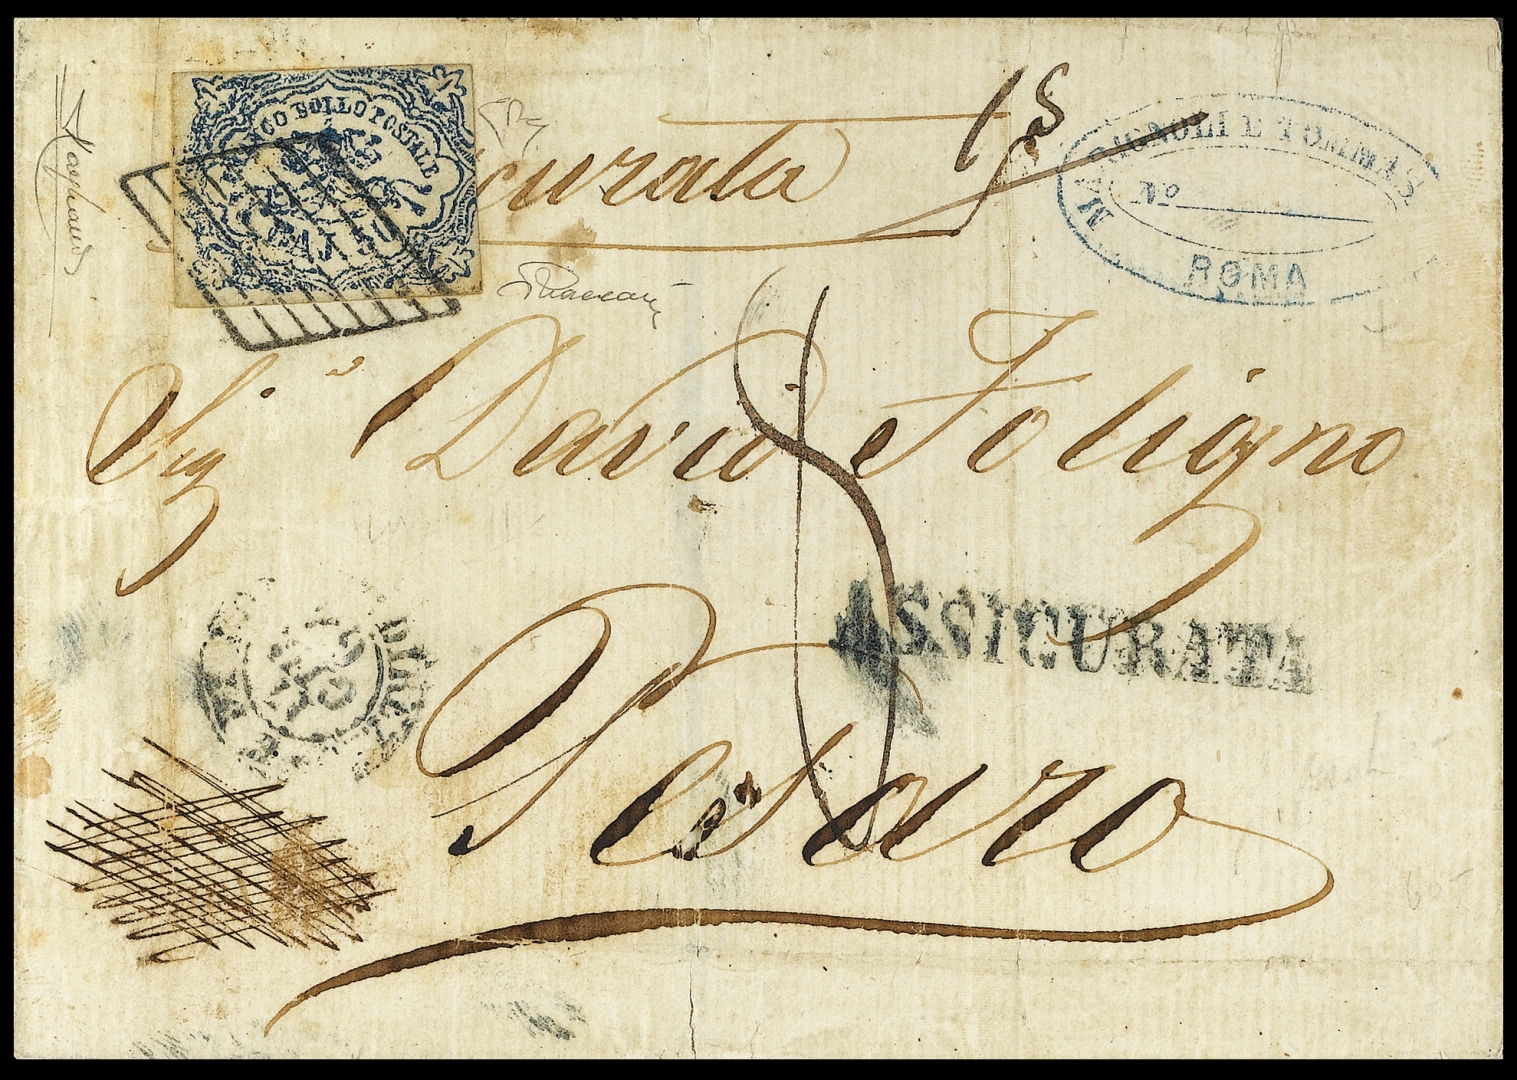 CO BOLLO POSTALE
BAJ 50
curata
18
MARIGNOLI E TOMMAS
Nº
ROMA
Sigʳ David Foligno
ASSICURATA
Pesaro